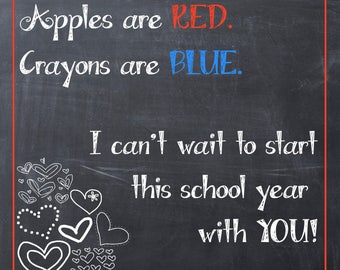 Apples are RED.
Crayons are BLUE.
I can't wait to start
this school year
with YOU!